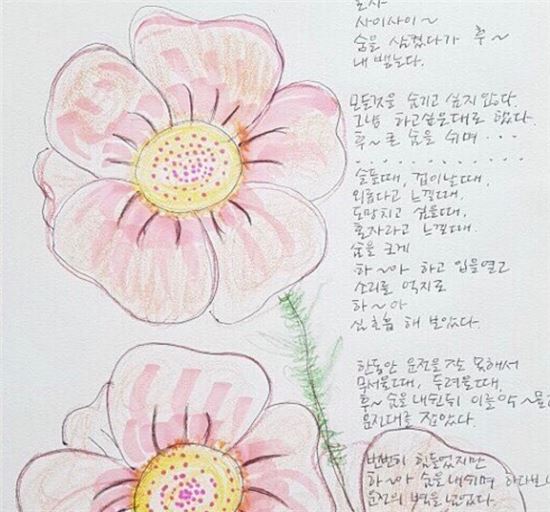 사이사이~
숨을 삼켰다가 후~
내뱉는다.
모든것을 숨기고 싶지 않다.
그냥 하고싶은대로 했다.
후~ 큰 숨을 쉬며 . . .
. . . . . . . . . . . . .
슬플때, 겁이날때,
외롭다고 느낄때,
도망치고 싶을때,
혼자라고 느낄때.
숨을 크게
하~아 하고 입을열고
소리를 억지로
하~아
심호흡 해 보았다.
한동안 운전을 잘 못해서
무서울때, 두려울때,
후~ 숨을 내쉰뒤 이를 악~물고
운전대를 잡았다.
번번히 힘들었지만
하~아 숨을 내쉬며 하다보니
운전의 벽을 넘었다.